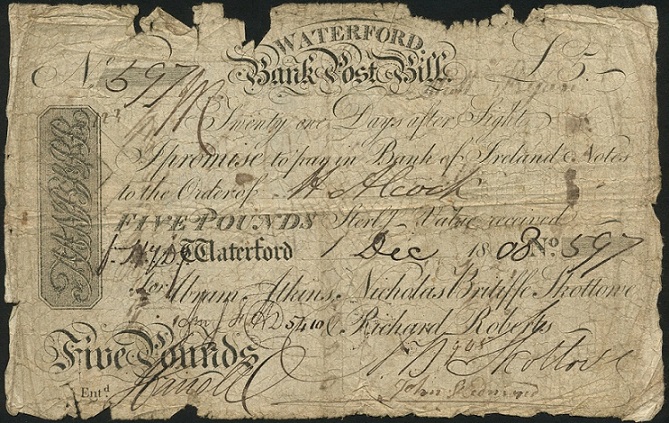 WATERFORD
Bank Post Bill
No. 597 £5.-
Twenty one Days after Sight
I promise to pay in Bank of Ireland Notes
to the Order of H Alcock
FIVE POUNDS Sterl.g Value received
Waterford 1 Dec 1808 No. 597
For Abram Atkins, Nicholas Britiffe Skottowe
Richard Roberts
Five Pounds
Skottowe
Ent.d